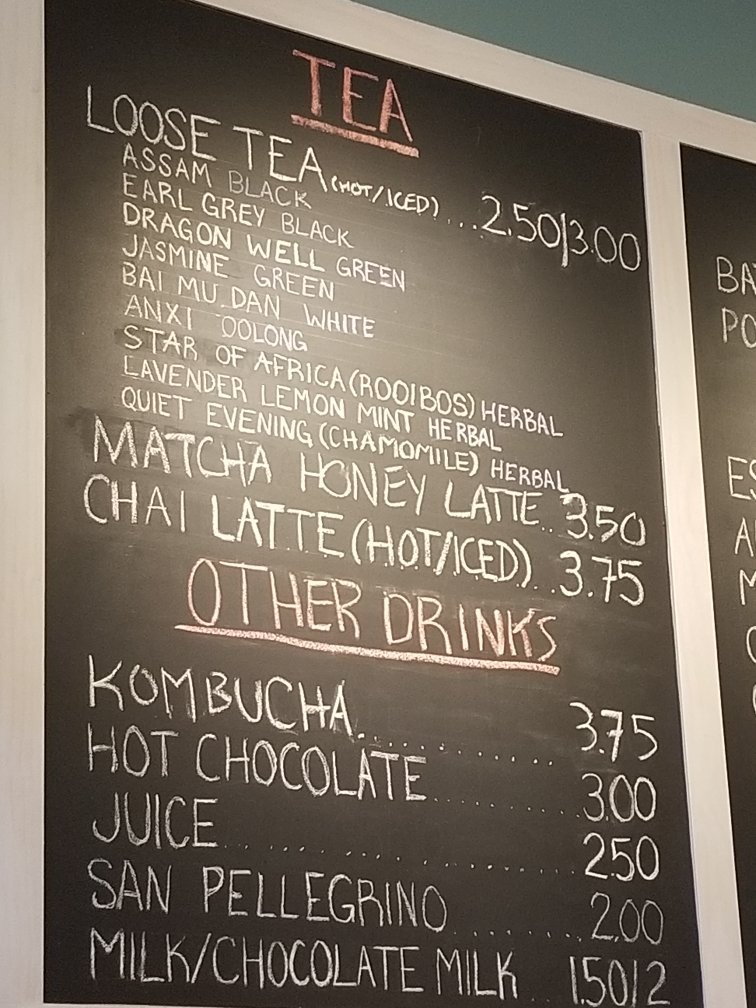 TEA
LOOSE TEA (HOT/ICED) ...2.50|3.00
ASSAM BLACK
EARL GREY BLACK
DRAGON WELL GREEN
JASMINE GREEN
BAI MU DAN WHITE
ANXI OOLONG
STAR OF AFRICA (ROOIBOS) HERBAL
LAVENDER LEMON MINT HERBAL
QUIET EVENING (CHAMOMILE) HERBAL
MATCHA HONEY LATTE..3.50
CHAI LATTE (HOT/ICED)..3.75
OTHER DRINKS
KOMBUCHA............3.75
HOT CHOCOLATE..........3.00
JUICE..................2.50
SAN PELLEGRINO.........2.00
MILK/CHOCOLATE MILK..1.50/2